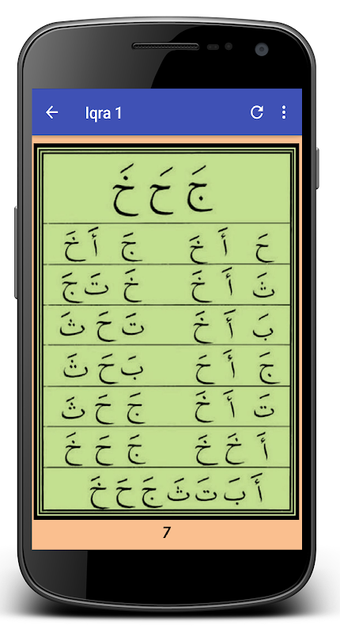 Iqra 1
جَ حَ خَ
حَ أَ خَ جَ أَ خَ
ثَ أَ خَ خَ تَ جَ
بَ أَ خَ تَ حَ ثَ
جَ أَ حَ بَ حَ ثَ
تَ أَ خَ جَ حَ ثَ
أَ خَ خَ جَ حَ خَ
أَ بَ تَ ثَ جَ حَ خَ
7